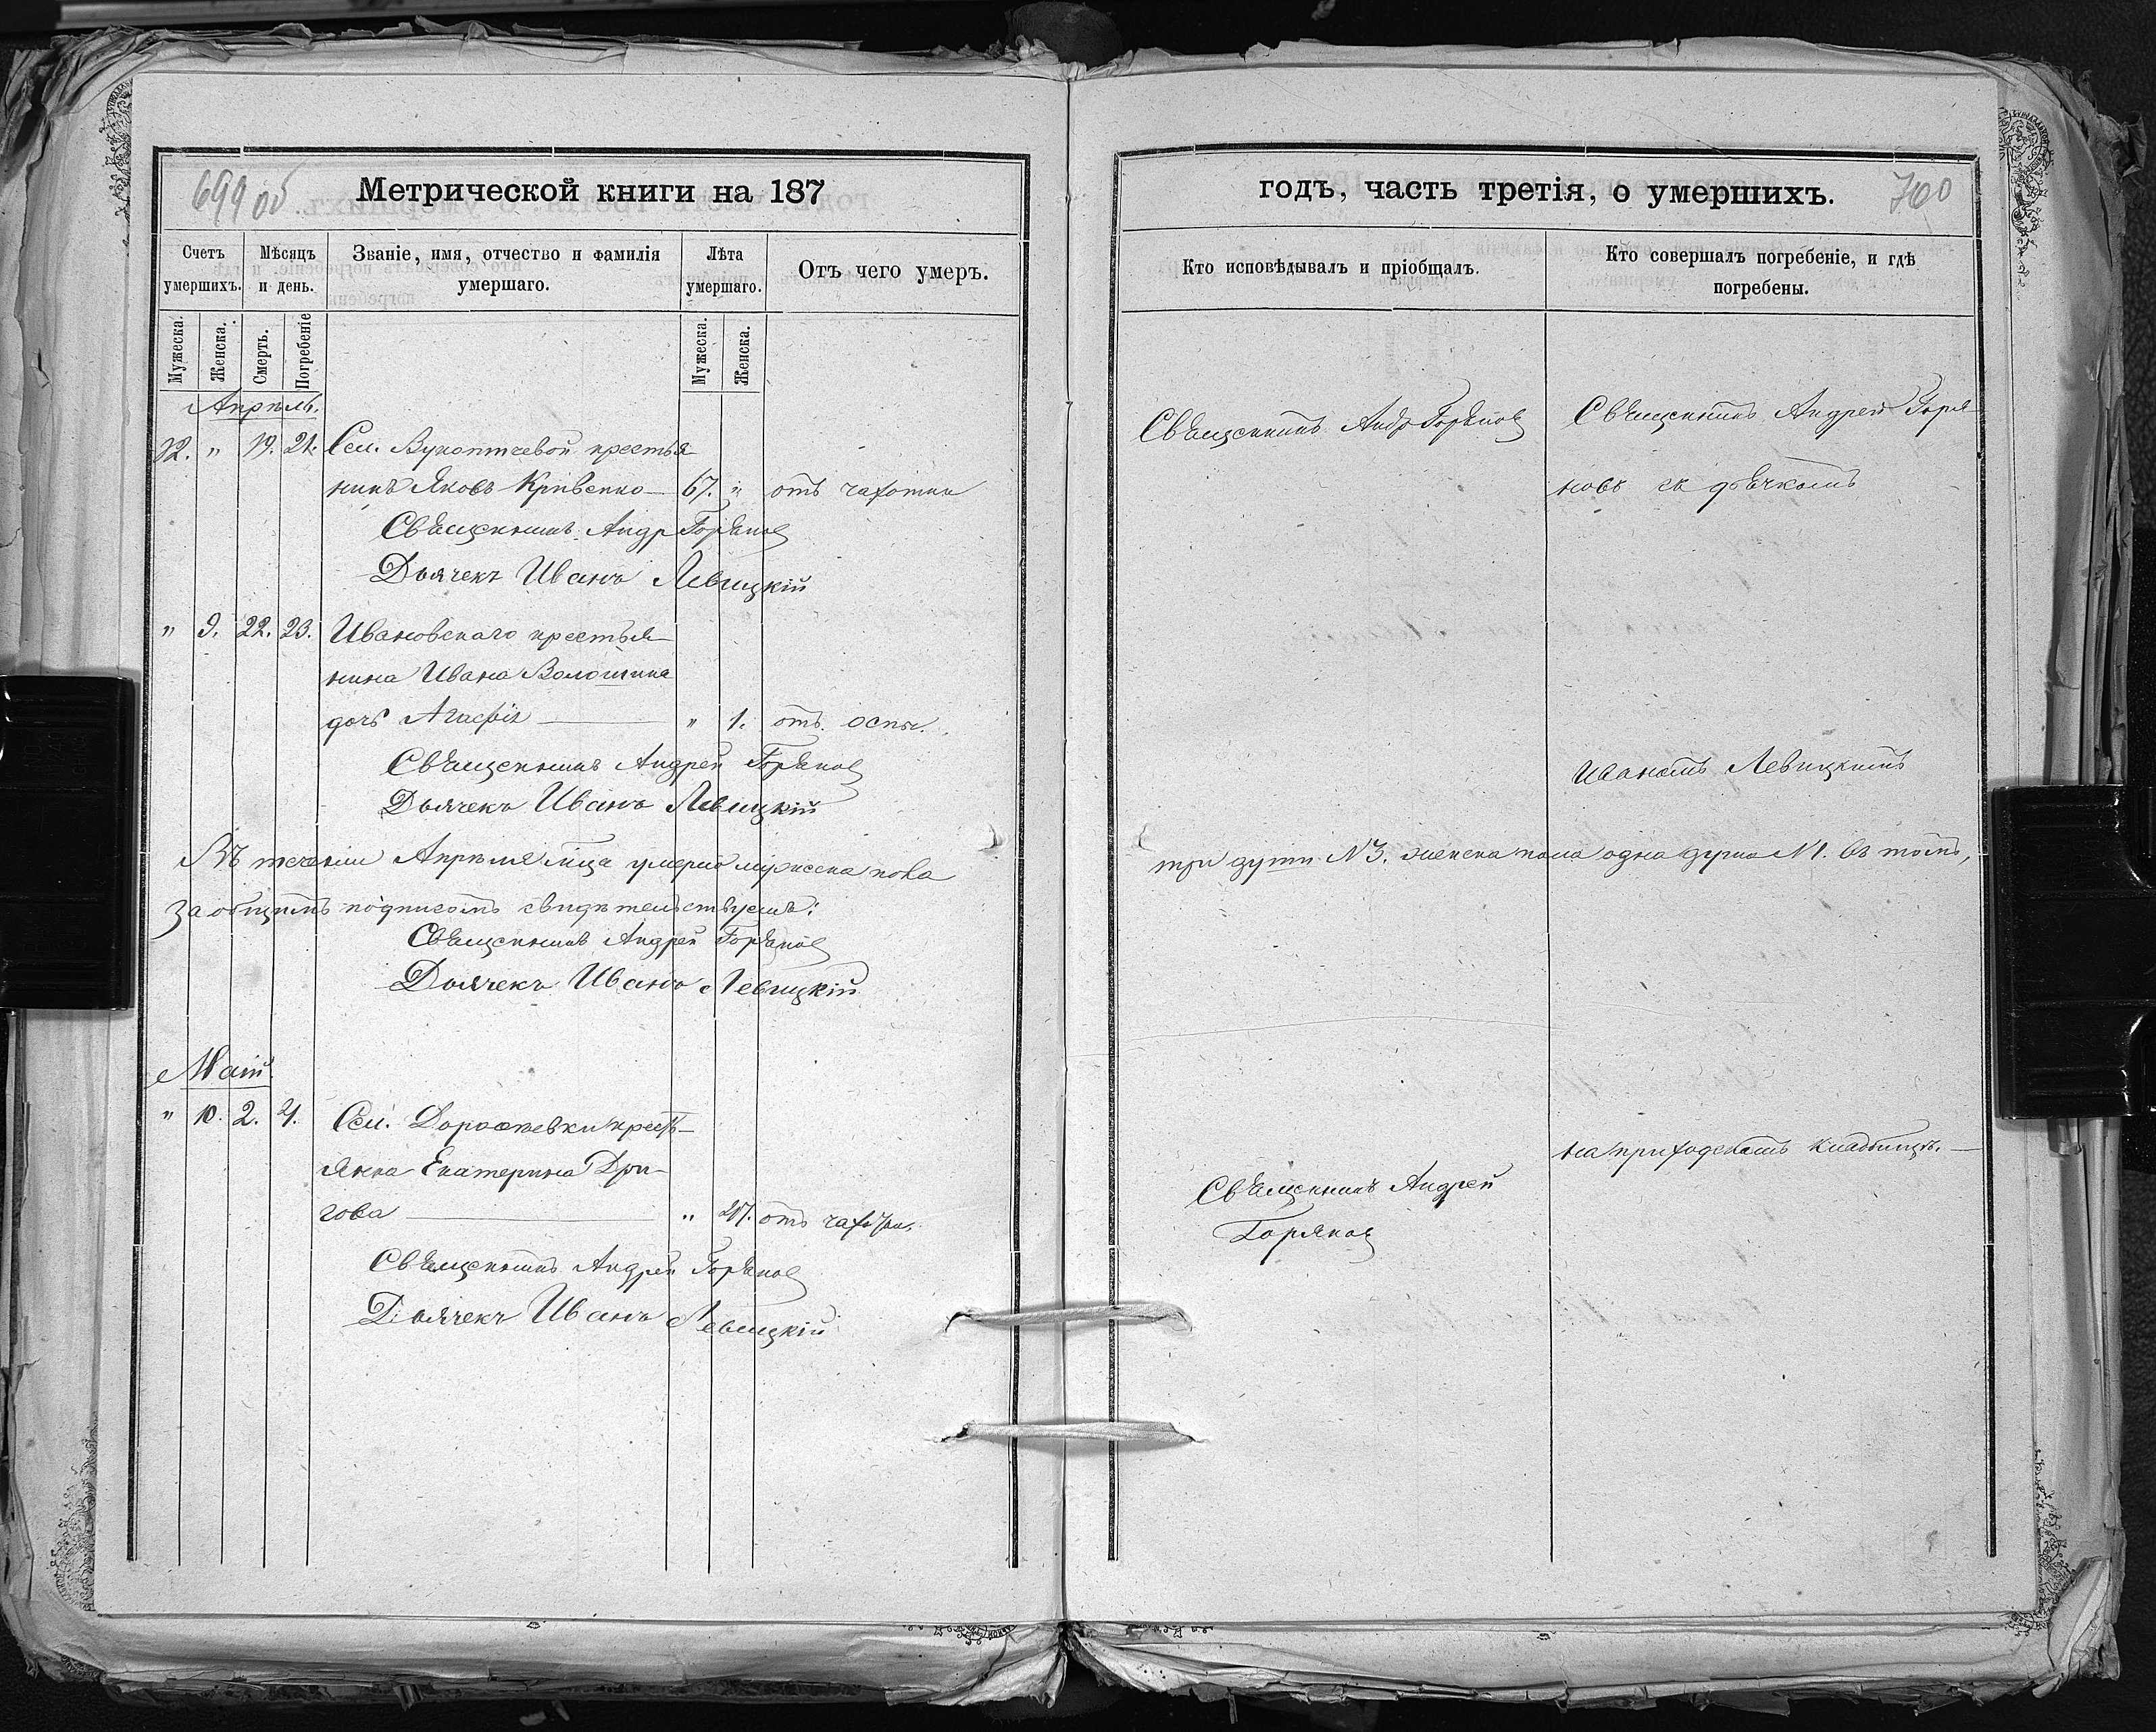 699 об
Метрической книги на 187
Счетъ умершихъ.
Мѣсяцъ и день.
Званіе, имя, отчество и фамилія умершаго.
Лѣта умершаго.
Отъ чего умеръ.
Мужеска.
Женска.
Смерть.
Погребеніе
Мужеска.
Женска.
Апрѣль.
12. " 19. 21. Сел. крестья-
нинъ Яковъ Кривенко — 67. " отъ чахотки
Священникъ Андр Горяnов
Дьячекъ Иванъ Левицкій
" 9. 22. 23. Ивановскаго крестья-
нина Ивана Волошина
дочь Агафія — " 1. отъ оспы.
Священникъ Андрей Горяинов
Дьячекъ Иванъ Левицкій
Въ теченіи Апрѣля мца умерло мужеска пола
За общимъ подписомъ свидѣтельствуемъ:
Священникъ Андрей
Дьячекъ Иванъ Левицкій
Май.
" 10. 2. 4. Сел. Дорофеевки крест-
янка Екатерина Дри-
гова — " 27. отъ чахотки.
Священникъ Андрей
Дьячекъ Иванъ Левицкій
годъ, часть третія, о умершихъ.
700
Кто исповѣдывалъ и пріобщалъ.
Кто совершалъ погребеніе, и гдѣ погребены.
Священникъ Андр
Священникъ Андрей Горя-
новъ съ дьячкомъ
Иваномъ Левицкимъ
три души N 3. женска пола одна душа N 1. въ томъ,
на приходскомъ кладбищѣ. —
Священникъ Андрей
Горянов